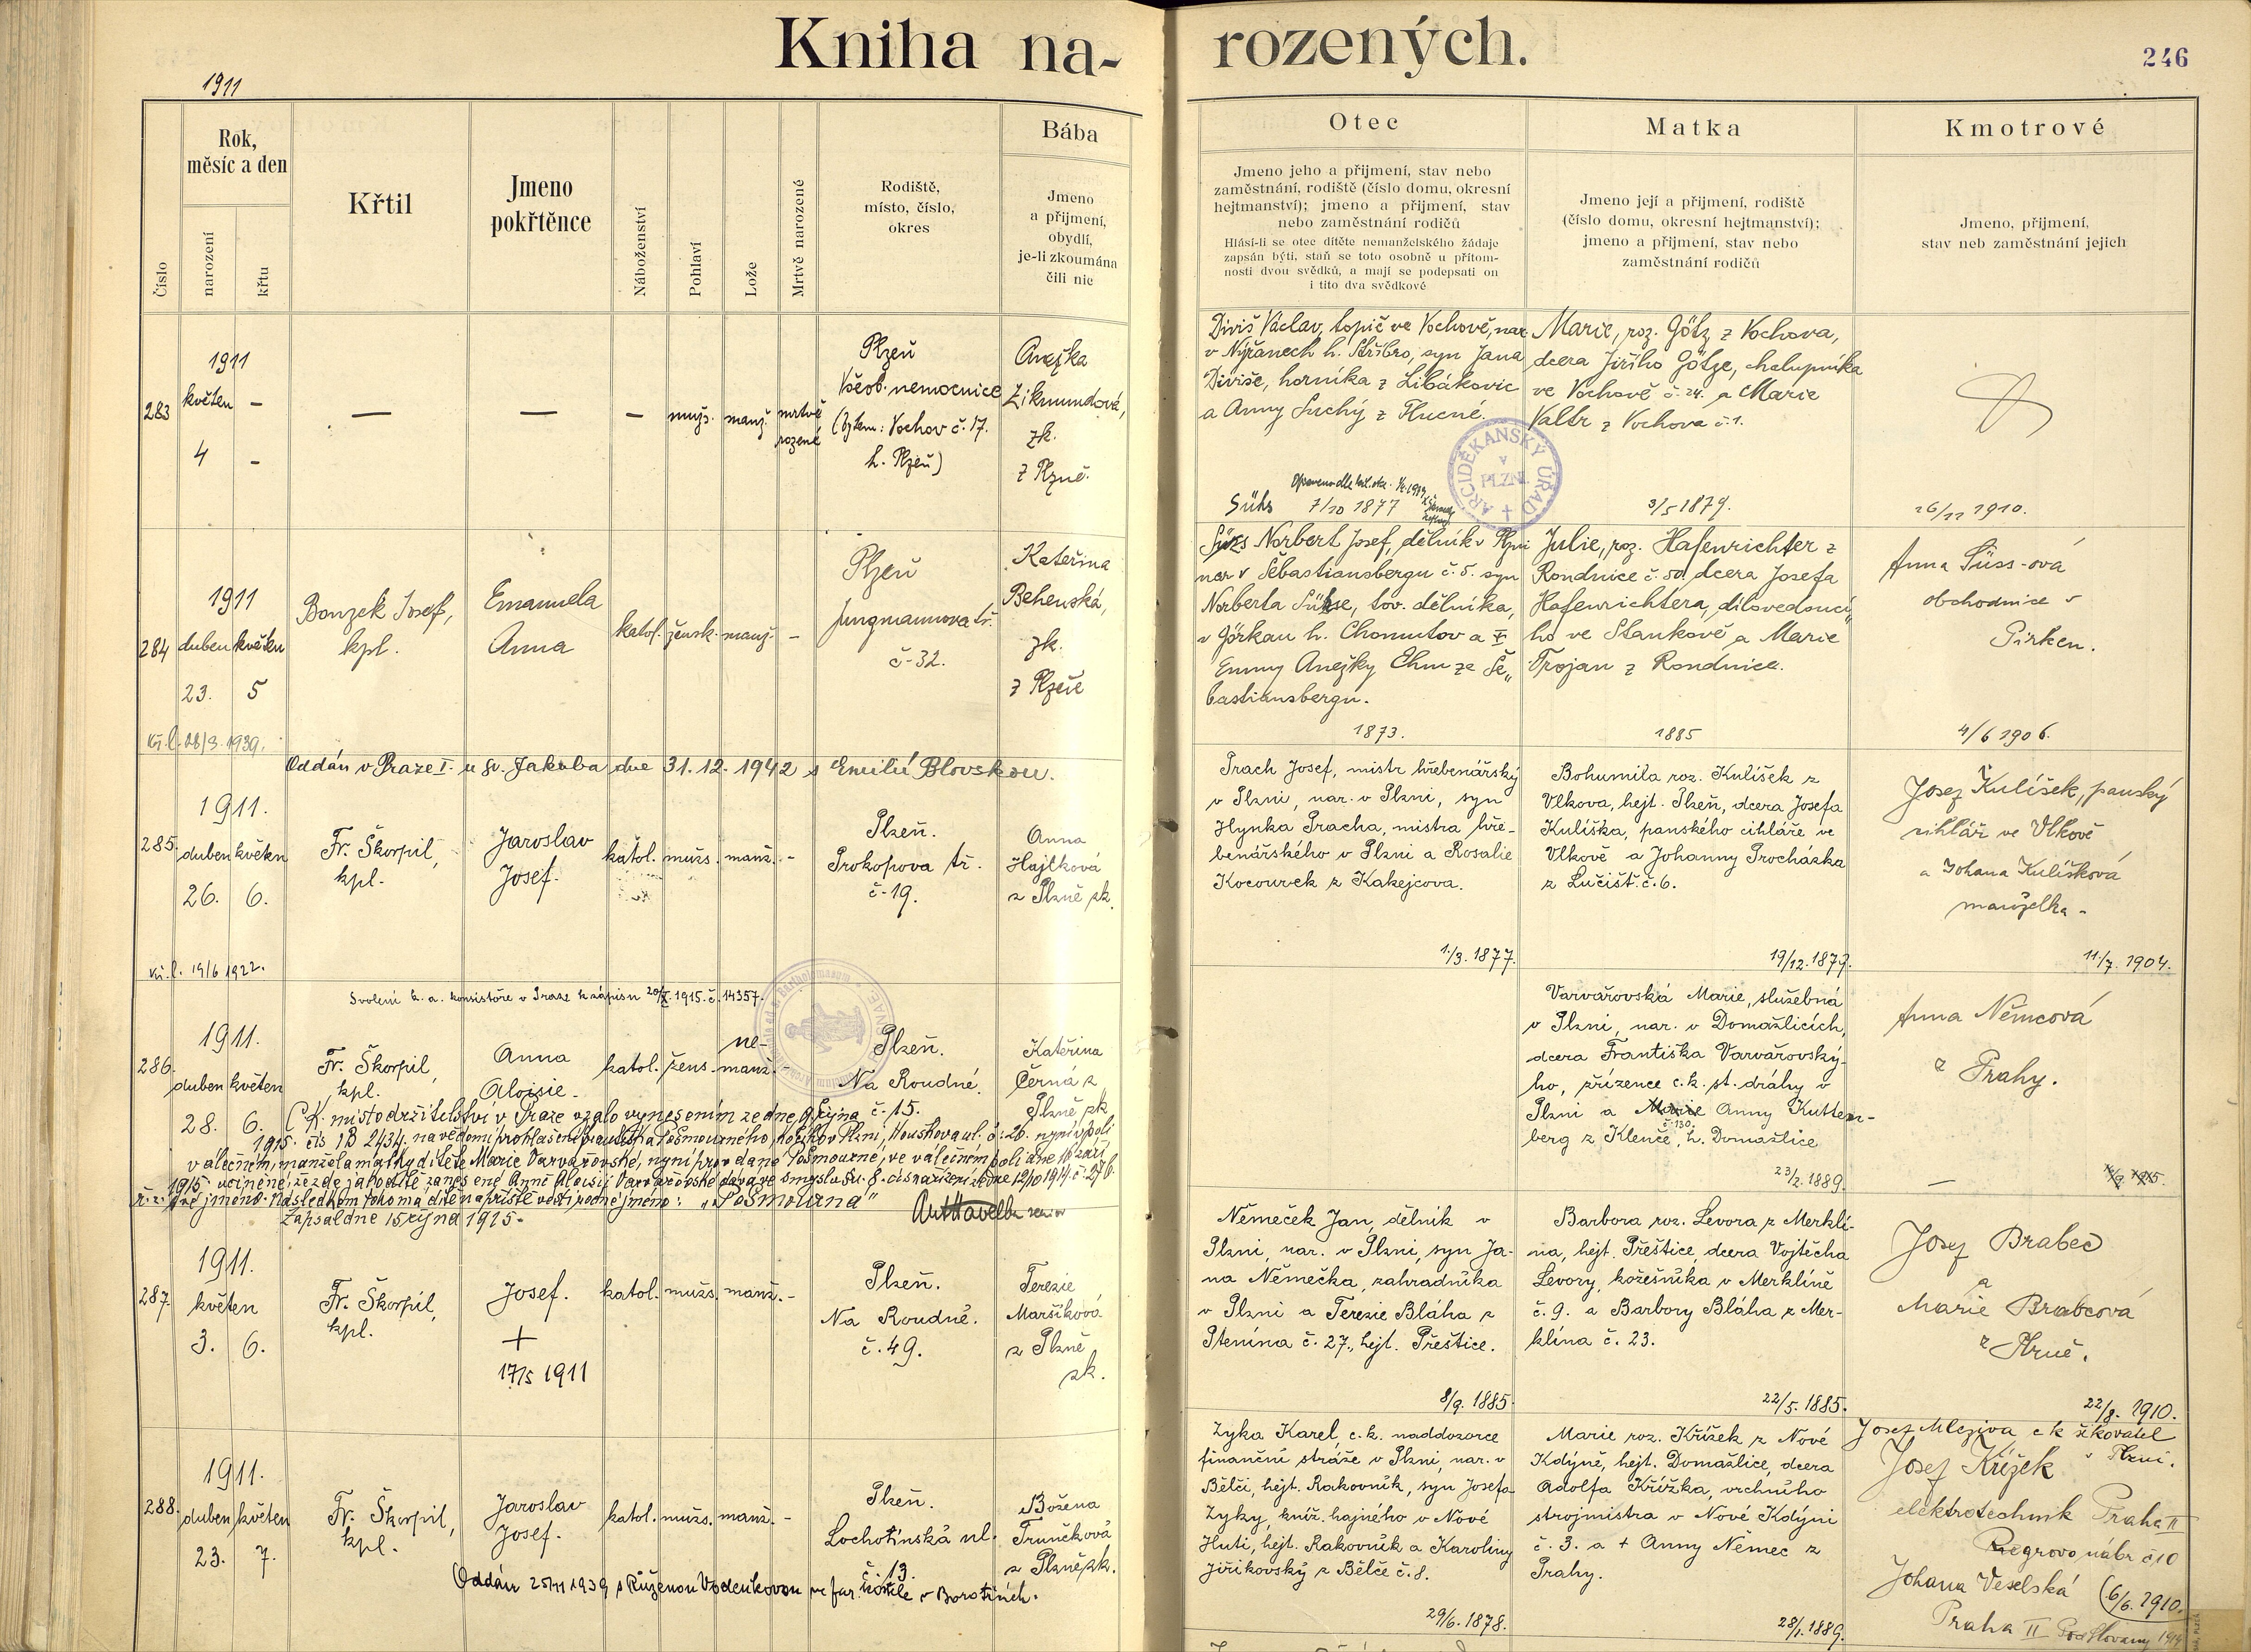 Kniha na-
rozených.
246
1911
Číslo
Rok,
měsíc a den
narození
křtu
Křtil
Jmeno
pokřtěnce
Náboženství
Pohlaví
Lože
Mrtvě narozené
Rodiště,
místo, číslo,
okres
Bába
Jmeno
a přijmení,
obydlí,
je-li zkoumána
čili nic
Otec
Jmeno jeho a přijmení, stav nebo
zaměstnání, rodiště (číslo domu, okresní
hejtmanství); jmeno a přijmení, stav
nebo zaměstnání rodičů
Hlásí-li se otec dítěte nemanželského žádaje
zapsán býti, staň se toto osobně u přítom-
nosti dvou svědků, a mají se podepsati on
i tito dva svědkové
Matka
Jmeno její a přijmení, rodiště
(číslo domu, okresní hejtmanství);
jmeno a přijmení, stav nebo
zaměstnání rodičů
Kmotrové
Jmeno, přijmení,
stav neb zaměstnání jejich
283
1911
květen -
4 -
—
—
—
mužs.
manž.
mrtvě
rozené
Plzeň
Všeob. nemocnice
(bytem: Vochov č. 17.
h. Plzeň)
Anežka
Zikmundová,
zk.
z Plzně.
Diviš Václav, topič ve Vochově, nar.
v Nýřanech h. Stříbro, syn Jana
Diviše, horníka z Libákovic
a Anny Suchý z Hlucné.
Marie, roz. Götz, z Vochova,
dcera Jiřího Götze, chalupníka
ve Vochově č. 24. a Marie
Valtr z Vochova č. 1.
ARCIDĚKANSKÝ ÚŘAD
v
PLZNI
Sühs 7/10 1877
3/5 1879.
26/11 1910.
284
1911
duben květen
23. 5
Bouzek Josef,
kpl.
Emanuela
Anna
katol.
žensk.
manž.
-
Plzeň
Jungmannova tř.
č. 32.
Kateřina
Behenská,
zk.
z Plzně
Norbert Josef, dělník v Plzni
nar. v Šebastiansbergu č. 5. syn
Norberta Sühse, tov. dělníka,
v Görkau h. Chomutov a
Emmy Anežky Ehm ze Še„
bastiansbergu.
Julie, roz. Hafenrichter z
Rondnice č. 50. dcera Josefa
Hafenrichtera, dílovedoucí„
ho ve Stankově a Marie
Trojan z Rondnice.
Anna Süss-ová
obchodnice v
Pirken.
1873.
1885
4/6 1906.
Kř. l. 28/3. 1939.
Oddán v Praze I. u sv. Jakuba dne 31. 12. 1942 s Emilií Blovskou.
285.
1911.
duben květen
26. 6.
Fr. Škorpil,
kpl.
Jaroslav
Josef.
katol.
mužs.
manž.
-
Plzeň.
Prokopova tř.
č. 19.
Anna
Hajtková
z Plzně zk.
Prach Josef, mistr hřebenářský
v Plzni, nar. v Plzni, syn
Hynka Pracha, mistra hře-
benářského v Plzni a Rosalie
Kocourek z Kakejcova.
Bohumila roz. Kulíšek z
Vlkova, hejt. Plzeň, dcera Josefa
Kulíška, panského cihláře ve
Vlkově a Johanny Procházka
z Lučišt. č. 6.
Josef Kulíšek, panský
cihlář ve Vlkově
a Johana Kulíšková
manželka -
1./3. 1877.
19/12. 1879.
11/7. 1904.
Kř. l. 19/6 1922.
Svolení k. a. konsistoře v Praze k zápisu 20/X. 1915. č. 14357.
286.
1911.
duben květen
28. 6.
Fr. Škorpil,
kpl.
Anna
Aloisie.
katol.
žens.
ne-
manž.
-
Plzeň.
Na Roudné.
č. 15.
Kateřina
Černá z
Plzně zk.
Varvařovská Marie, služebná
v Plzni, nar. v Domažlicích,
dcera Františka Varvařovský-
ho, zřízence c. k. st. dráhy v
Plzni a Marie Anny Kutten-
berg z Klenče, č. 130. h. Domažlice
Anna Němcová
z Prahy.
C. K. místodržitelství v Praze vzalo vynesením ze dne října
1915. čís 1B 2434. na vědomí prohlášení Františka Pošmourného, v Plzni, Houskova ul. č: 26. nyní v poli
válečném, manžela matky dítěte Marie Varvařovské, nyní prov daná Pošmourné, ve válečném poli dne 16 září
1915. učiněné, že zde jako dítě zanesené Anně Aloisii Varvařovské dává ve smyslu čís nařízení ze dne 12/10 1914 č. 276
ř. z. své jméno. Následkem toho má dítě na příště vésti rodné jméno: „Pošmourná“
Zapsal dne 15 října 1915.
23/2. 1889.
287.
1911.
květen
3. 6.
Fr. Škorpil,
kpl.
Josef.
+
17/5 1911
katol.
mužs.
manž.
-
Plzeň.
Na Roudné.
č. 49.
Terezie
Maršíková
z Plzně
zk.
Němeček Jan, dělník v
Plzni, nar. v Plzni, syn Ja-
na Němečka, zahradníka
v Plzni a Terezie Bláha z
Ptenína č. 27., hejt. Přeštice.
Barbora roz. Levora z Merklí-
na, hejt. Přeštice, dcera Vojtěcha
Levory, kožešníka v Merklíně
č. 9. a Barbory Bláha z Mer-
klína č. 23.
Josef Brabec
a
Marie Brabcová
z Plzně.
8/9. 1885.
22/5. 1885.
22/8. 1910.
288.
1911.
duben květen
23. 7.
Fr. Škorpil,
kpl.
Jaroslav
Josef.
katol.
mužs.
manž.
-
Plzeň.
Lochotínská ul.
č. 13.
Božena
Trunečková
z Plzně zk.
Oddán 25/11 1939 s Růženou Vodenkovou ve far. kostele v Borotíních.
Zyka Karel, c. k. naddozorce
finanční stráže v Plzni, nar. v
Bělči, hejt. Rakovník, syn Josefa
Zyky, kníž. hajného v Nové
Huti, hejt. Rakovník a Karoliny
Jiřikovský z Bělče č. 8.
Marie roz. Křížek z Nové
Kdýně, hejt. Domažlice, dcera
Adolfa Křížka, vrchního
strojmistra v Nové Kdýni
č. 3. a + Anny Němec z
Prahy.
Josef Mleziva c k
v Plzni.
Josef Křížek
elektrotechnik Praha II
Riegrovo nábř č 10
Johana Veselská (6/6. 1910.
Praha II Pod Slovany
29/6. 1878.
28/1. 1889.